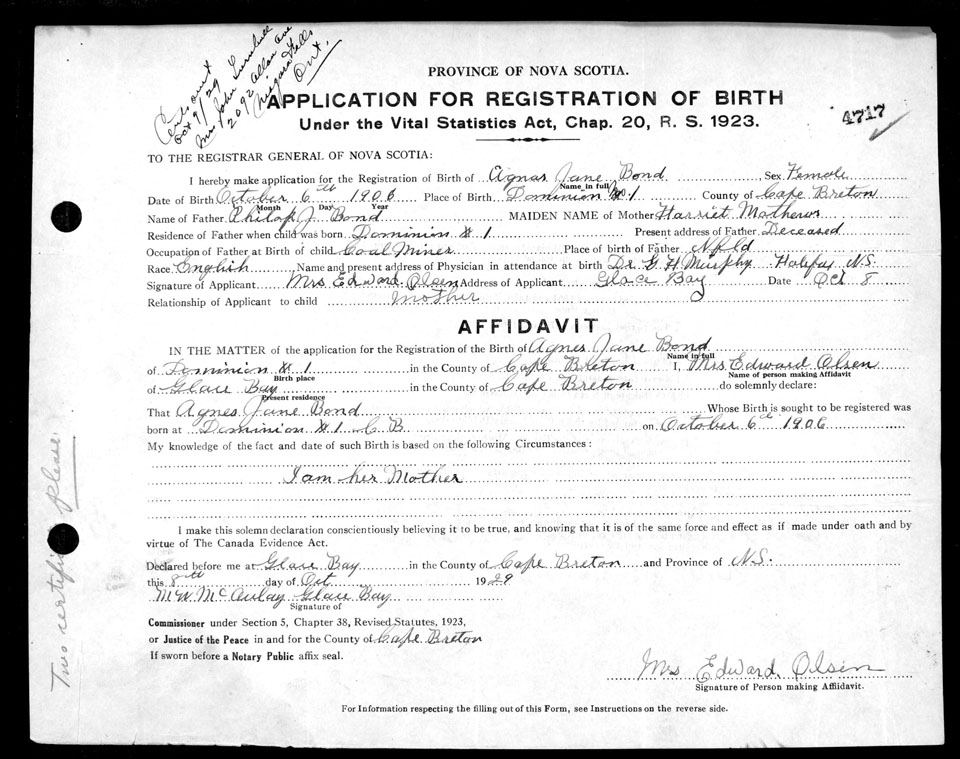 Cert. sent
Oct 9/29
Mrs John Turnbull
2092 Allan ave
Niagara Falls
Ont.
4717
PROVINCE OF NOVA SCOTIA.
APPLICATION FOR REGISTRATION OF BIRTH
Under the Vital Statistics Act, Chap. 20, R. S. 1923.
TO THE REGISTRAR GENERAL OF NOVA SCOTIA:
I hereby make application for the Registration of Birth of Agnas Jane Bond Sex Female
Name in full
Date of Birth October 6th 1906 Place of Birth Dominion No 1 County of Cape Breton
Month Day Year
Name of Father Philap J. Bond MAIDEN NAME of Mother Harriet Mathews
Residence of Father when child was born Dominion # 1 Present address of Father Deceased
Occupation of Father at Birth of child Coal Miner Place of birth of Father Nfld
Race English Name and present address of Physician in attendance at birth Dr G. H Murphy Halifax N.S.
Signature of Applicant Mrs Edward. Olsen Address of Applicant Glace Bay Date Oct 8
Relationship of Applicant to child Mother
AFFIDAVIT
IN THE MATTER of the application for the Registration of the Birth of Agnes Jane Bond
Name in full
of Dominion # 1 in the County of Cape Breton I, Mrs Edward Olsen
Birth place Name of person making Affidavit
of Glace Bay in the County of Cape Breton do solemnly declare:
Present residence
That Agnes Jane Bond Whose Birth is sought to be registered was
born at Dominion # 1 C B on October 6th 1906
My knowledge of the fact and date of such Birth is based on the following Circumstances:
I am her Mother
I make this solemn declaration conscientiously believing it to be true, and knowing that it is of the same force and effect as if made under oath and by
virtue of The Canada Evidence Act.
Declared before me at Glace Bay in the County of Cape Breton and Province of N.S.
this 8th day of Oct 1929
M W McAulay Glace Bay
Signature of
Commissioner under Section 5, Chapter 38, Revised Statutes, 1923,
or Justice of the Peace in and for the County of Cape Breton
If sworn before a Notary Public affix seal.
Mrs Edward. Olsen
Signature of Person making Affidavit.
For Information respecting the filling out of this Form, see Instructions on the reverse side.
Two certific please.